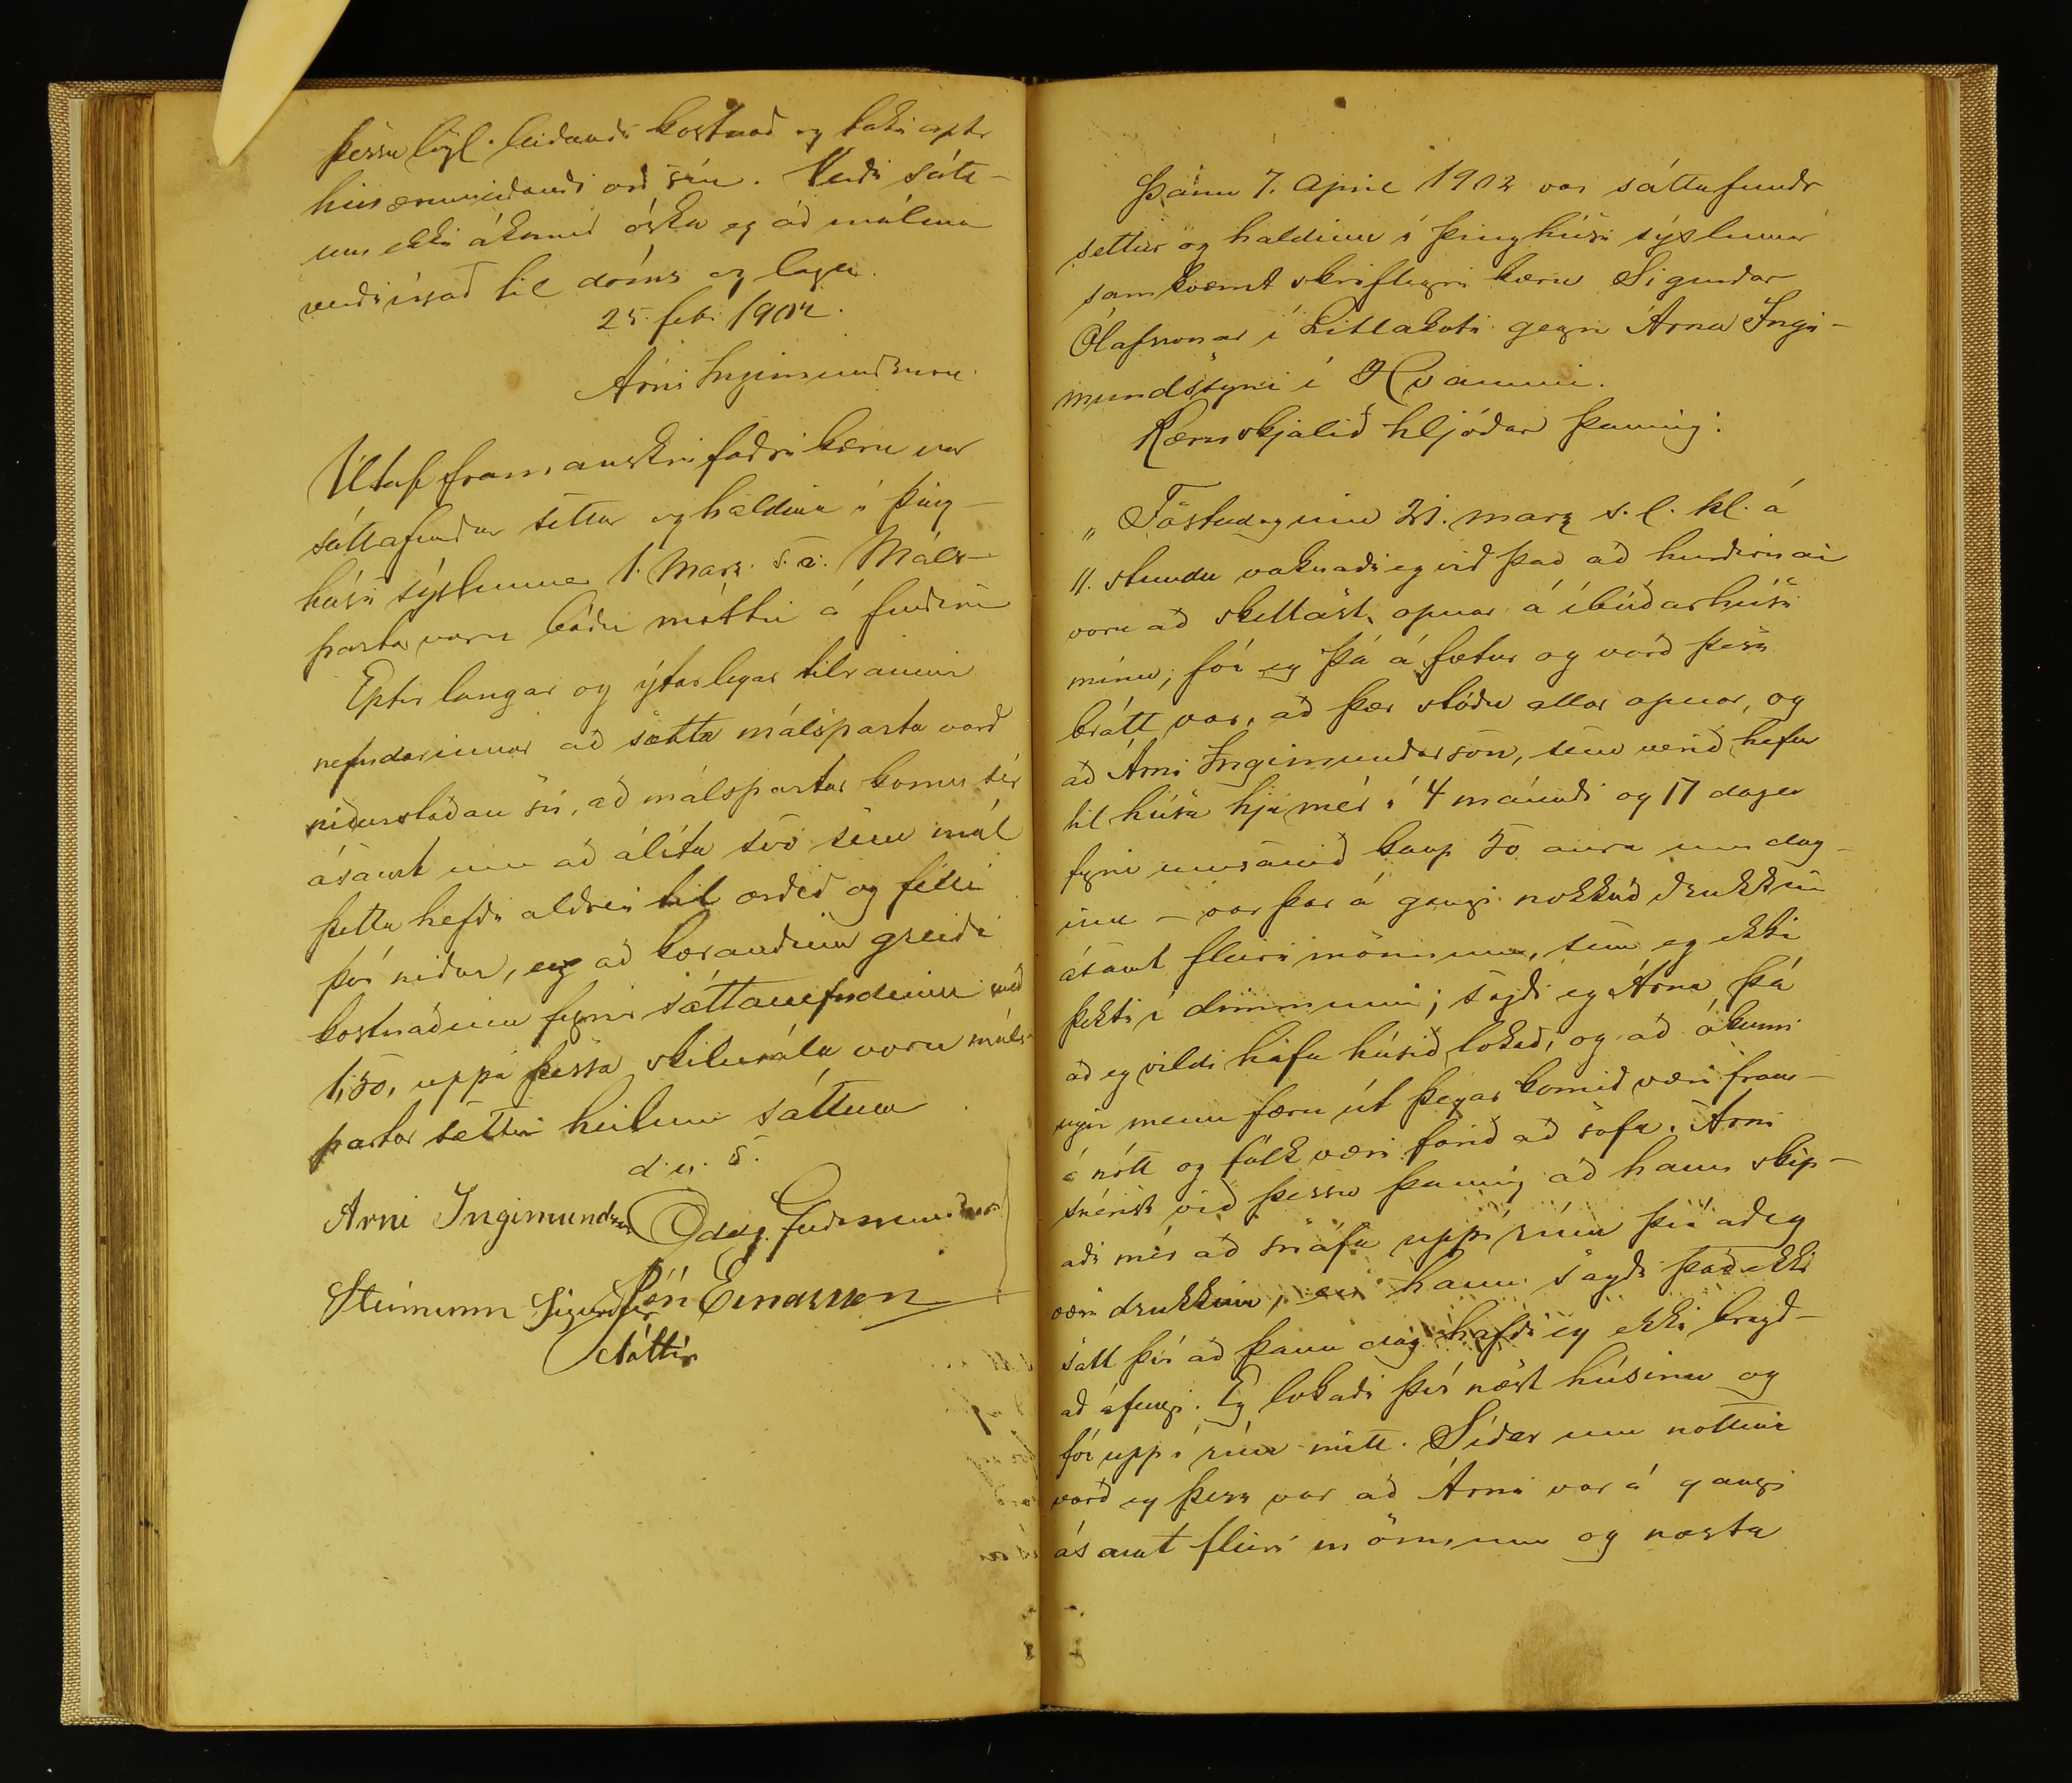 þessu lögl. leiðandi kostnað og taki aptr
hin ærumeiðandi orð sín. Verði sátt-
um ekki ákomið óska eg að málinu
verði vísað til dóms og laga.
25. febr. 1902.
Árni Ingimundsson.
Útaf framanskrifaðri kæru var
sáttafundur settur og haldinn í þing-
húsi sýslunnar 1. Marz. s.á. Máls-
partar voru báðir mættir á fundinum
Eptir langar og ýtarlegar tilraunir
nefndarinnar að sætta málsparta varð
niðurstaðan sú, að málspartar komu sér
ásamt um að álíta svo sem mál
þetta hefði aldrei til orðið og félli
því niður, og að kærandinn greiði
kostnaðinn fyrir sáttanefndinni með
1,50, uppá þessa skilmála voru máls-
partar sættir heilum sáttum
d. u. s.
Arni Ingimundsson Oddg. Guðmundsson
Steinunn Sigurðar Jón Einarsson
dóttir
Þann 7. Apríl 1902 var sáttafundr
settur og haldinn í þinghúsi sýslunnar
samkvæmt skriflegri kæru Sigurðar
Ólafssonar í Litlakoti gegn Árna Ingi-
mundssyni í Hvammi.
Kæruskjalið hljóðar þannig:
„Föstudaginn 21. marz s.l. kl. á
11. stundu vaknaði eg við það að hurðirnar
voru að skellast opnar á íbúðarhúsi
mínu; fór eg þá á fætur og varð þess
brátt var, að þær stóðu allar opnar, og
að Árni Ingimundarson, sem verið hefur
til húsa hjá mér í 4 mánuði og 17 daga
fyrir umsamið kaup 50 aura um dag-
inn – var þar á gangi nokkuð drukkinn
ásamt fleiri mönnum, sem eg ekki
þekti í dimmunni; sagði eg Árna þá
að eg vildi hafa húsið lokað, og að ókunn
ugir menn færu út þegar komið væri fram-
á nótt og fólk væri farið að sofa. Árni
snérist við þessu þannig að hann skip-
aði mér að snáfa uppí rúm því að eg
væri drukkinn, en hann sagði það ekki
satt því að þann dag hafði eg ekki bragð-
að áfengi. Eg lokaði því næst húsinu og
fór upp í rúm mitt. Síðar um nóttina
varð eg þess var að Árni var á gangi
ásamt fleiri mönnum og næsta